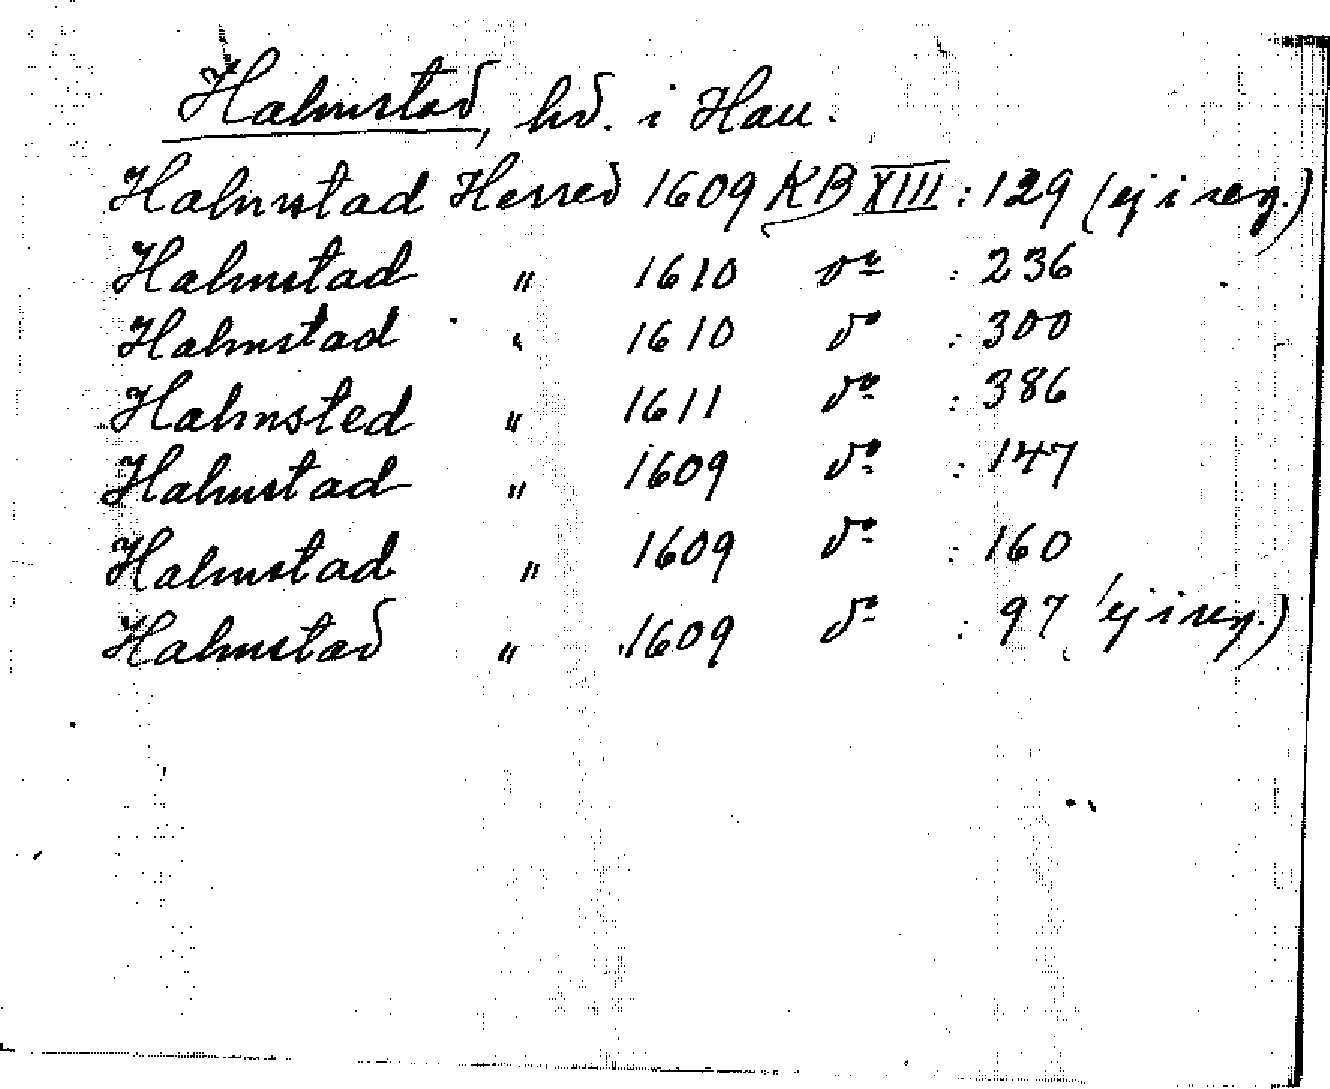 Halmstad, hd. i Hall.
Halmstad Herred 1609 KB XIII : 129 (ej i reg.)
Halmstad " 1610 do : 236
Halmstad " 1610 do : 300
Halmsted " 1611 do : 386
Halmstad " 1609 do : 147
Halmstad " 1609 do : 160
Halmstad " 1609 do : 97 (ej i reg.)